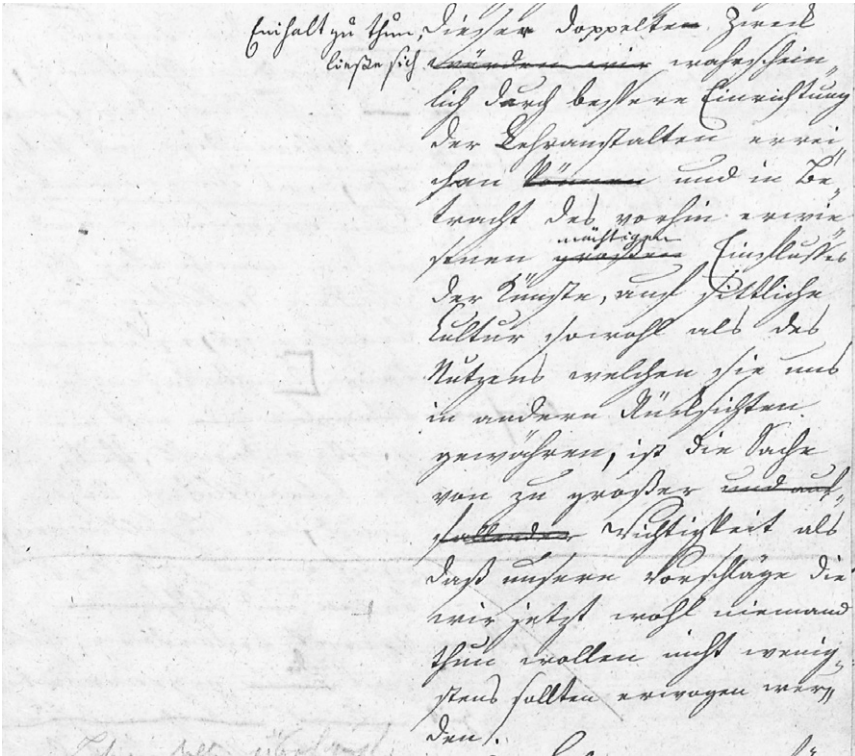 Einhalt zu thun, Dieser doppelte Zweck
ließe sich würden wir wahrschein„
lich durch bessere Einrichtung
der Lehranstalten errei„
chen können und in Be„
tracht des vorhin erwie„
mächtigen
senen großen Einflusses
der Künste, auf sittliche
Cultur sowohl als des
Nutzens welchen sie uns
in andern Rücksichten
gewähren, ist die Sache
von zu großer und auf„
fallender Wichtigkeit als
daß unsere Vorschläge die
wir jetzt wohl niemand
thun wollen nicht wenig„
stens sollten erwogen wer„
den.